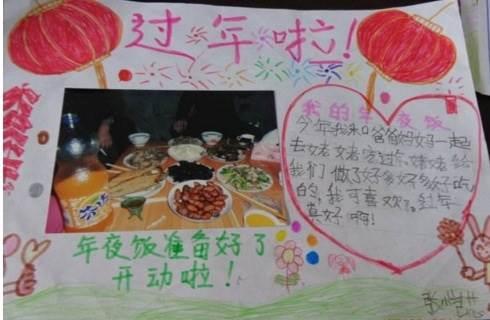 过年啦!
我的年夜饭
今年我和爸爸妈妈一起
去姥姥过年,姥姥给
我们做了好多好多好吃
的,我可喜欢了。过年
真好啊!
年夜饭准备好了
开动啦!